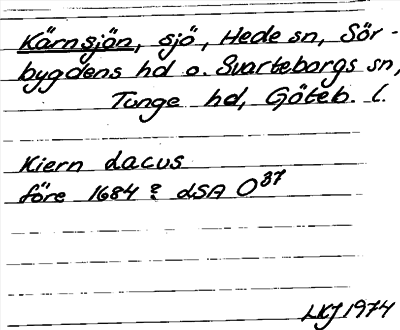 Kärnsjön, sjö, Hede sn, Sör-
bygdens hd o. Svarteborgs sn,
Tunge hd, Göteb. l.
Kiern dacus
före 1684? dSA O³⁷
LKJ 1974